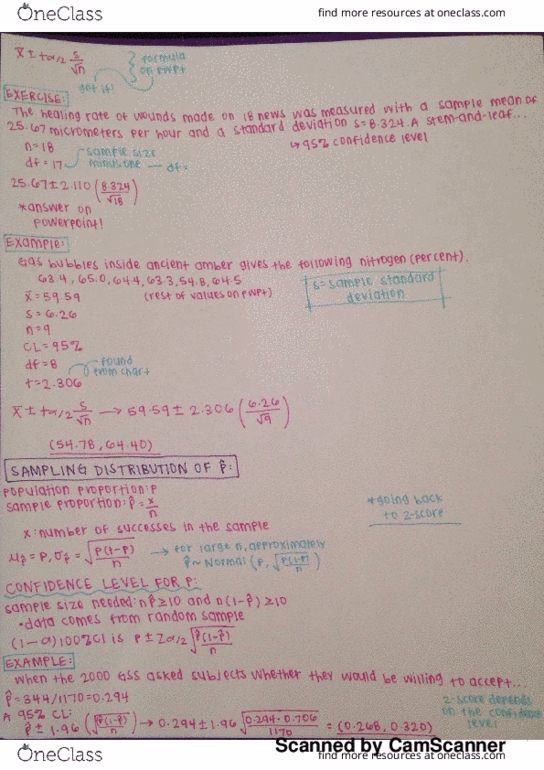 OneClass
find more resources at oneclass.com
x̄ ± tα/2 s/√n
formula on PWPT
got it!
EXERCISE:
The healing rate of wounds made on 18 news was measured with a sample mean of
25.67 micrometers per hour and a standard deviation s=8.324. A stem-and-leaf...
n=18
sample size
↳ 95% confidence level
df=17
minus one — df=
25.67 ± 2.110 (8.324/√18)
*answer on
powerpoint!
Example:
Gas bubbles inside ancient amber gives the following nitrogen (percent).
63.4, 65.0, 64.4, 63.3, 54.8, 64.5
x̄ = 59.59
(rest of values on PWPT)
s=sample standard
deviation
s=6.26
n=9
CL=95%
df=8
found
from chart
t=2.306
x̄ ± tα/2 s/√n → 59.59 ± 2.306 (6.26/√9)
(54.78, 64.40)
SAMPLING DISTRIBUTION OF p̂:
population proportion: P
sample proportion: p̂ = x/n
*going back
to z-score
x: number of successes in the sample
μp̂ = P, σp̂ = √(P(1-P)/n)
→ for large n, approximately
p̂ ~ Normal (p, √(p(1-p)/n))
CONFIDENCE LEVEL FOR P:
sample size needed: np̂ ≥ 10 and n(1-p̂) ≥ 10
• data comes from random sample
(1-α)100% CI is p ± Zα/2 √(p̂(1-p̂)/n)
EXAMPLE:
when the 2000 GSS asked subjects whether they would be willing to accept...
p̂ = 344/1170 = 0.294
A 95% CL:
p̂ ± 1.96 (√(p̂(1-p̂)/n)) → 0.294 ± 1.96 √(0.294·0.706/1170) = (0.268, 0.320)
z-score depends
on the confidence
level
Scanned by CamScanner
OneClass
find more resources at oneclass.com